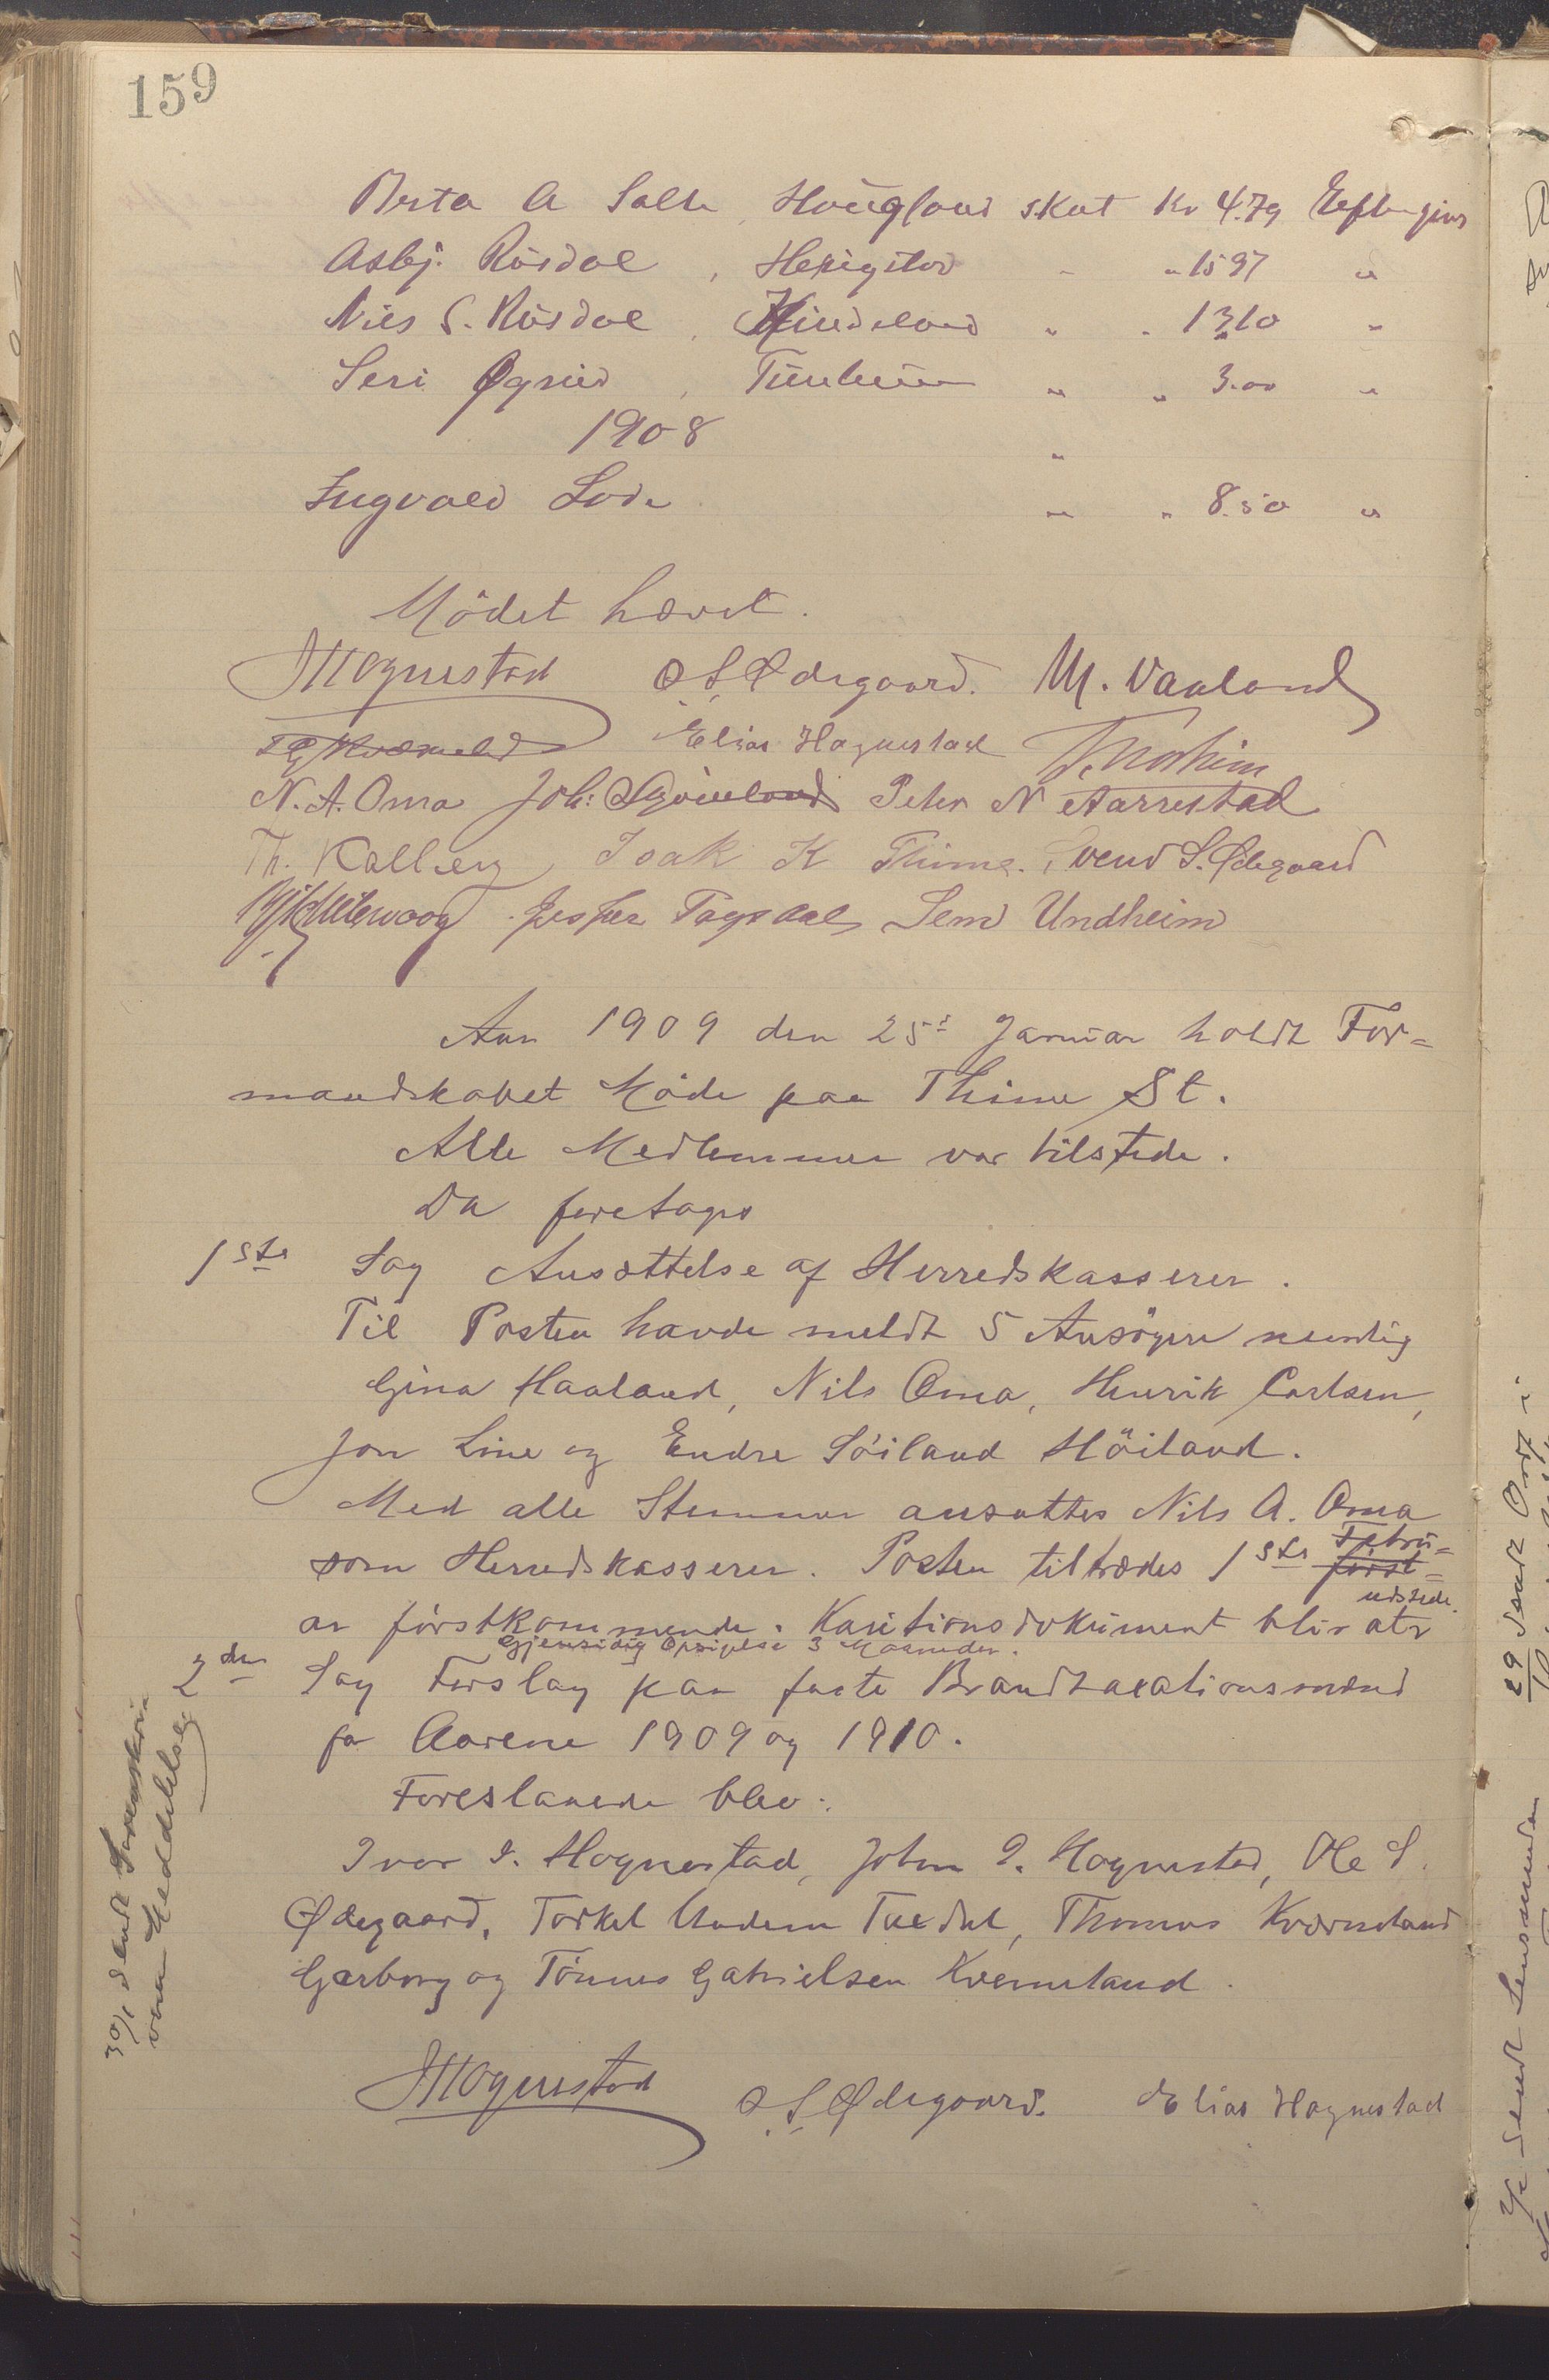 159
Berta A Salte Haugland skat Kr 4.79 Eftergives
Asbj. Rosdal, Hetigstad - " 15 97 "
Nils S. Rosdal, Hindeland " " 13,10 "
Seri Øgreid, Tunheim " " 3.00 "
1908 "
Ingvald Lode " " 8.50 "
Mödet hævet.
J Hognestad O S Ødegaard. M. Vauland
T G Kværneland Elias Hognestad T. Norheim
N. A. Oma Joh: Skjæveland Peter N Aarrestad
Th. Kalberg Isak K Thime. Svend S. Ødegaard
Jesper Tagholdt Sem Undheim
Aar 1909 den 25de Januar holdt For=
mandskabet Möde paa Thime St.
Alle Medlemmer var tilstede.
Da foretages
1ste Sag Ansættelse af Herredskasserer.
Til Posten havde meldt 5 Ansögere nemlig
Gina Haaland, Nils Oma, Henrik Carlsen,
Jon Line og Endre Söiland Höiland.
Med alle Stemmer ansattes Nils A. Oma
som Herredskasserer. Posten tiltrædes 1ste först= Febru=
ar förstkommende. Kautionsdokument blir at udstede.
Gjensidig Opsigelse 3 Maaneder.
2den Sag Forslag paa faste Brandtaxationsmænd
for Aarene 1909 og 1910.
Foreslanede blev:
Ivar I. Hognestad, John I. Hognestad, Ole S.
Ødegaard, Torkel Undem Tuedal, Thomas Kværneland
Garborg og Tönnes Gabrielsen Kverneland.
30/1 sendt Sorenskriv
veren Meddelelse
J Hognestad O S Ødegaard. Elias Hognestad
29 sendt
sendt Lensmanden